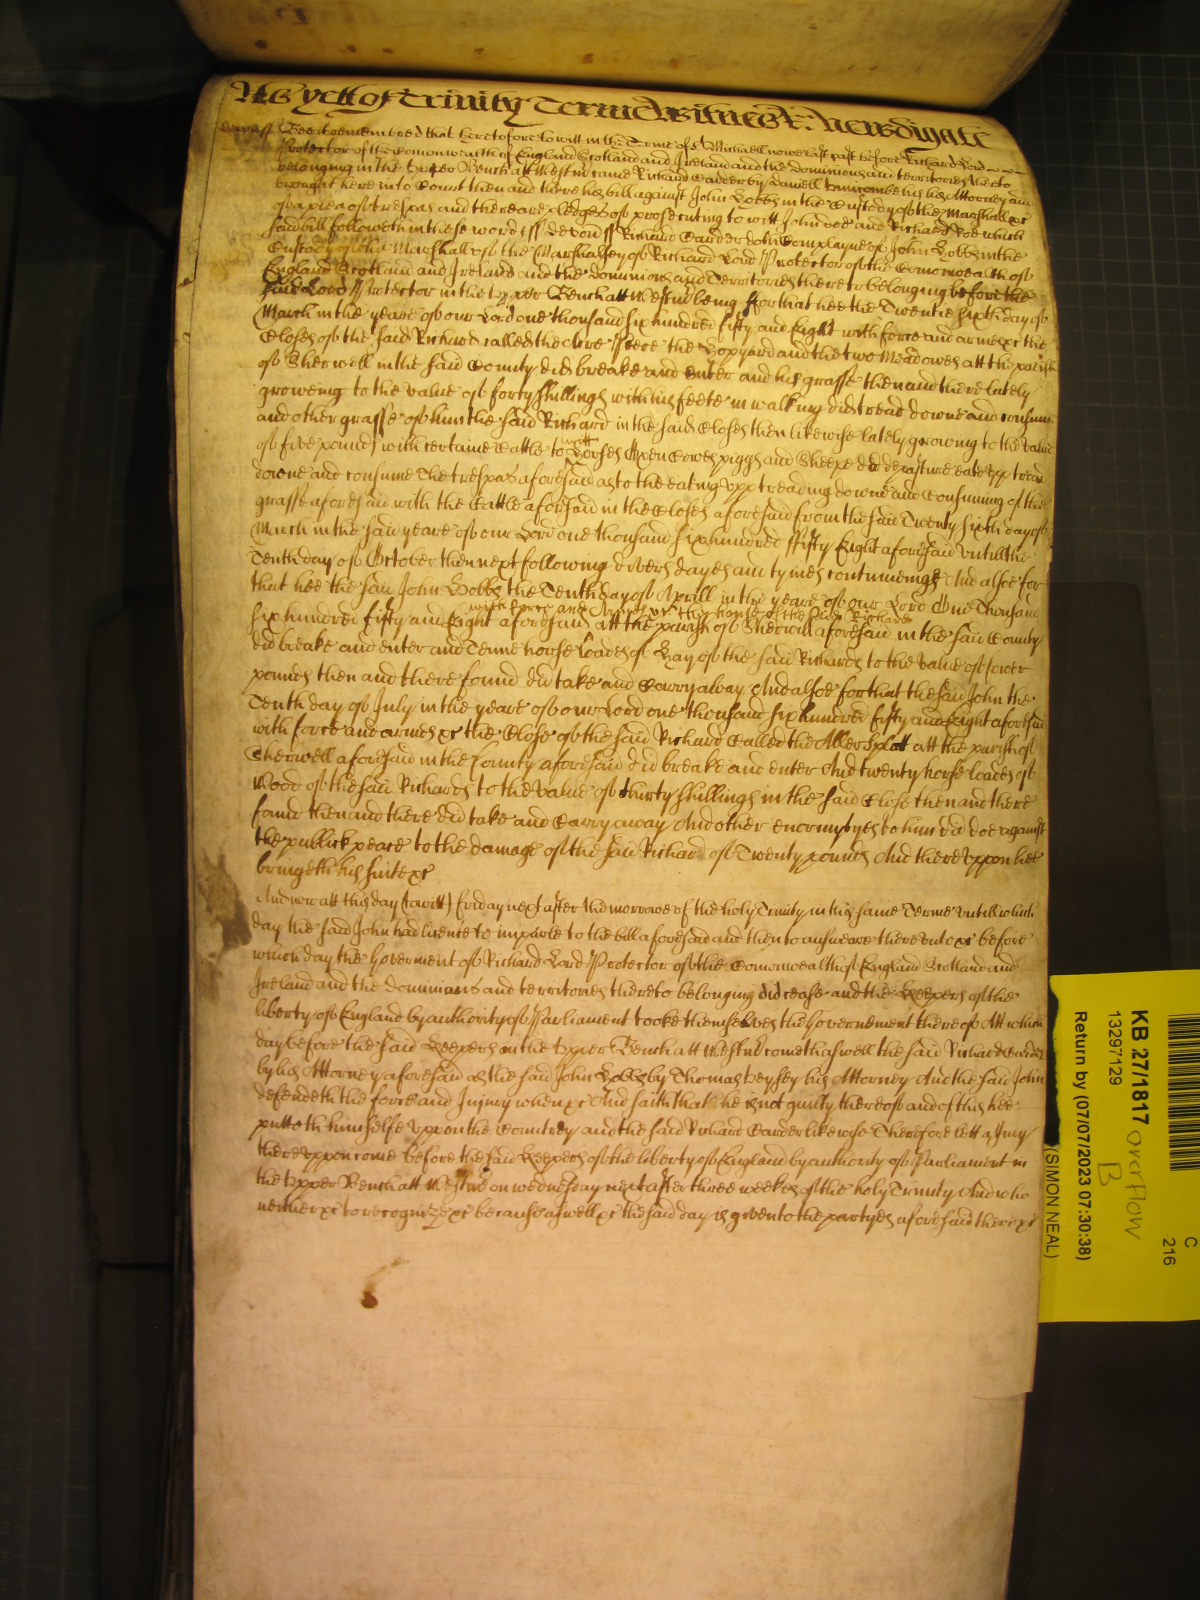 As yett of Trinity Terme Witnes R: Newdigate
Devon ss Bee it remembred that heretofore to witt in the Terme of St Michaell nowe last past before Richard Lord
Protector of the Comonwealth of England Scotland and Ireland and the Dominions and territories thereto
belonging in the Upper Bench att Westmr came Richard Carder by Daniell his Attorney and
brought here into Court then and there his bill against John Hobbs in the Custody of the Marshall &c
of a plea of trespas and there are pledges of prosecuting to witt John Doe and Richard Roe which
said bill followeth in these words ss Devon ss Richard Carder doth Complayne of John Hobbs in the
Custody of the Marshall of the Marshalsey of Richard Lord Protector of the Comonwealth of
England Scotland and Ireland and the Dominions and Territories thereto belonging before the
said Lord Protector in the Upper Bench att Westmr being For that hee the Twentie sixth day of
March in the yeare of our Lord one thousand six hundred fifty and Eight with force and armes &c the
Closes of the said Richard called the Clove Peece the Hopyard and the two Meadowes att the parish
of Sherwell in the said County did breake and enter and his grasse then and there lately
groweing to the value of forty shillings with his feete in walking did tread downe and consume
and other grasse of him the said Richard in the said Closes then likewise lately growing to the value
of five pounds with certaine Cattle to witt Horses Oxen Cowes piggs and Sheepe did depasture eate upp tread
downe and consume The trespas aforesaid as to the eating upp treading downe and Consuming of the
grasse aforesaid with the Cattle aforesaid in the Closes aforesaid from the said Twenty sixth day of
March in the said yeare of our Lord one thousand six hundred fifty Eight aforesaid untill the
Tenth day of October then next following divers dayes and tymes continueing And alsoe for
that hee the said John Hobbs the Tenth day of Aprill in the yeare of our Lord One Thousand
with force and Armes &c the house of the said Richard
six hundred fifty and Eight aforesaid att the parish of Sherwill aforesaid in the said County
did breake and enter and Tenne horse loades of Hay of the said Richards to the value of fower
pounds then and there found did take and Carry away And alsoe for that the said John the
Tenth day of July in the yeare of our Lord one thousand six hundred fifty and Eight aforesaid
with force and armes &c the Close of the said Richard Called the Aller Splott att the parish of
Sherwell aforesaid in the County aforesaid did breake and enter And twenty horse loades of
Wood of the said Richards to the value of thirty shillings in the said Close then and there
found then and there did take and Carry away And other enormytyes to him did doe against
the publick peace to the damage of the said Richard of Twenty pounds And thereuppon hee
bringeth his suite &c
And now att this day (to witt) friday next after the morrowe of the holy Trinity in this same Terme untill which
day the said John had licence to imparle to the bill aforesaid and then to answeare thereunto &c before
which day the Goverment of Richard Lord Protector of the Comonwealth of England Scotland and
Ireland and the dominions and territories thereto belonging did cease and the Keepers of the
liberty of England by authority of Parliament tooke themselves the Governement thereof Att which
day before the said Keepers in the Upper Bench att Westmr cometh aswell the said Richard Carder
by his Attorney aforesaid as the said John Hobbs by Thomas Heysey his Attorney And the said John
defendeth the force and Injury when &c And saith that he is not guilty thereof and of this hee
putteth himselfe uppon the Countrey and the said Richard Carder likewise Therefore lett a Jury
thereuppon come before the said Keepers of the liberty of England by authority of Parliament in
the Upper Bench att Westmr on wednesday next after three weekes of the holy Trinity And who
neither &c to recognize &c because aswell &c the said day is given to the partyes aforesaid there &c
KB 27/1817 overflow
B
13297129
Return by (07/07/2023 07:30:38)
(SIMON NEAL)
C
216